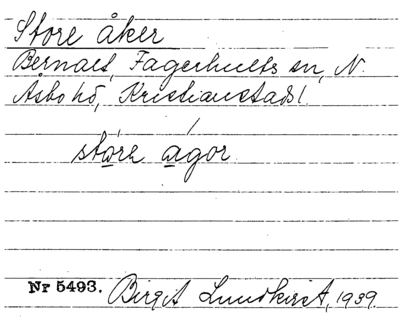 Store åker
Bernalt, Fagerhults sn, N.
Åsbo hd, Kristianstads l.
störe agor
Nr 5493. Birgit Lundkvist, 1939.